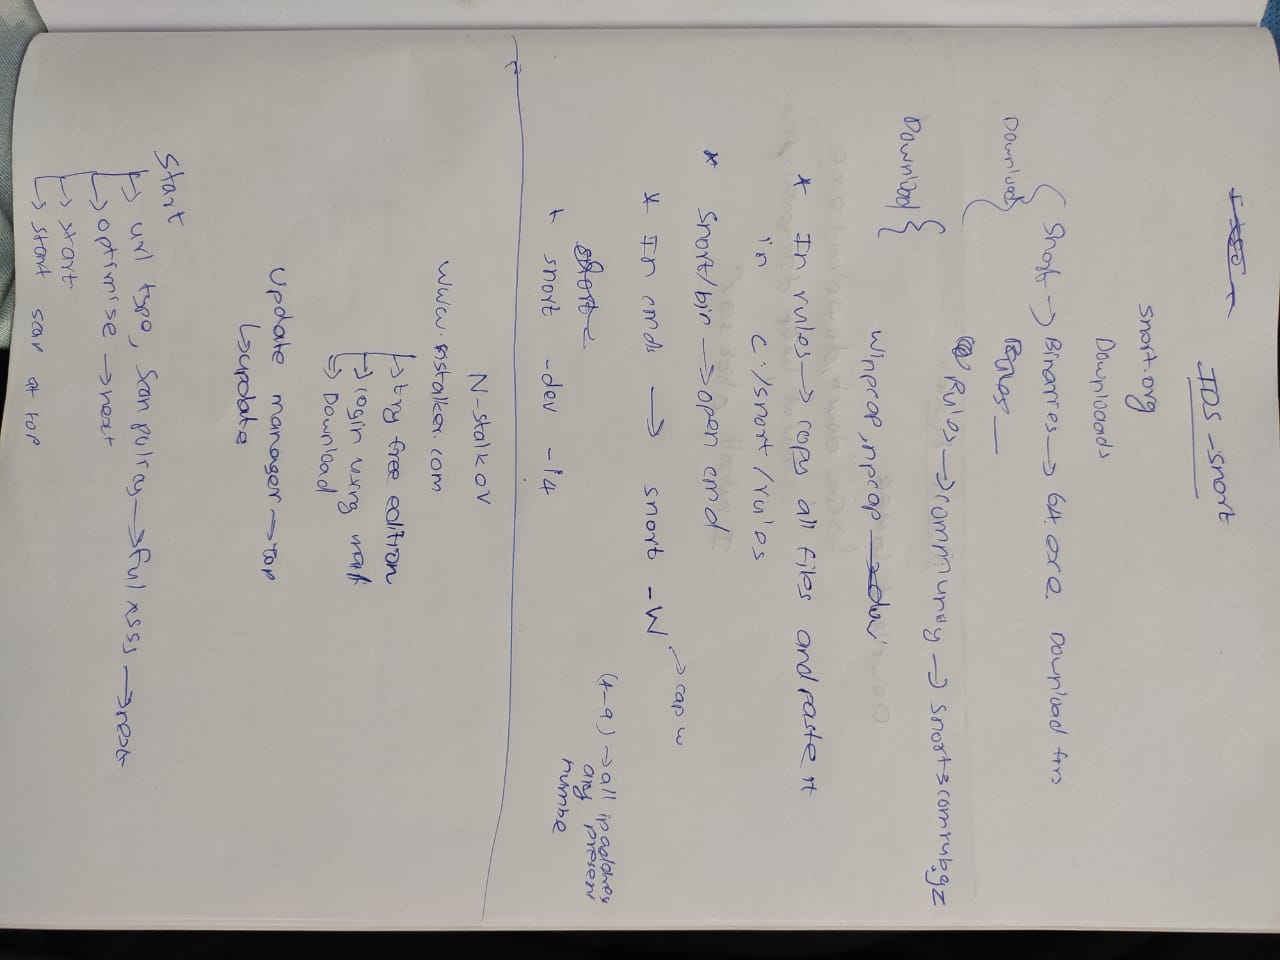 IDS - snort
snort.org
Downloads
Download { Short -> Binaries -> 64.exe. Download this
Rules -> community -> snort3commrub.gz
Download { winpcap, npcap
* In rules -> copy all files and paste it
in c:/snort/rules
* Snort/bin -> open cmd
* In cmds -> snort -W -> cap w
(4-9) -> all ipaddres
any present
numbe
+ snort -dev -i4
N-stalkov
www.nstalker.com
↳ try free edition
↳ login using mail
↳ Download
update manager -> top
↳ update
Start
↳ url type, Scan -> full xsss -> next
↳ optimise -> next
↳ start
↳ start scan at top